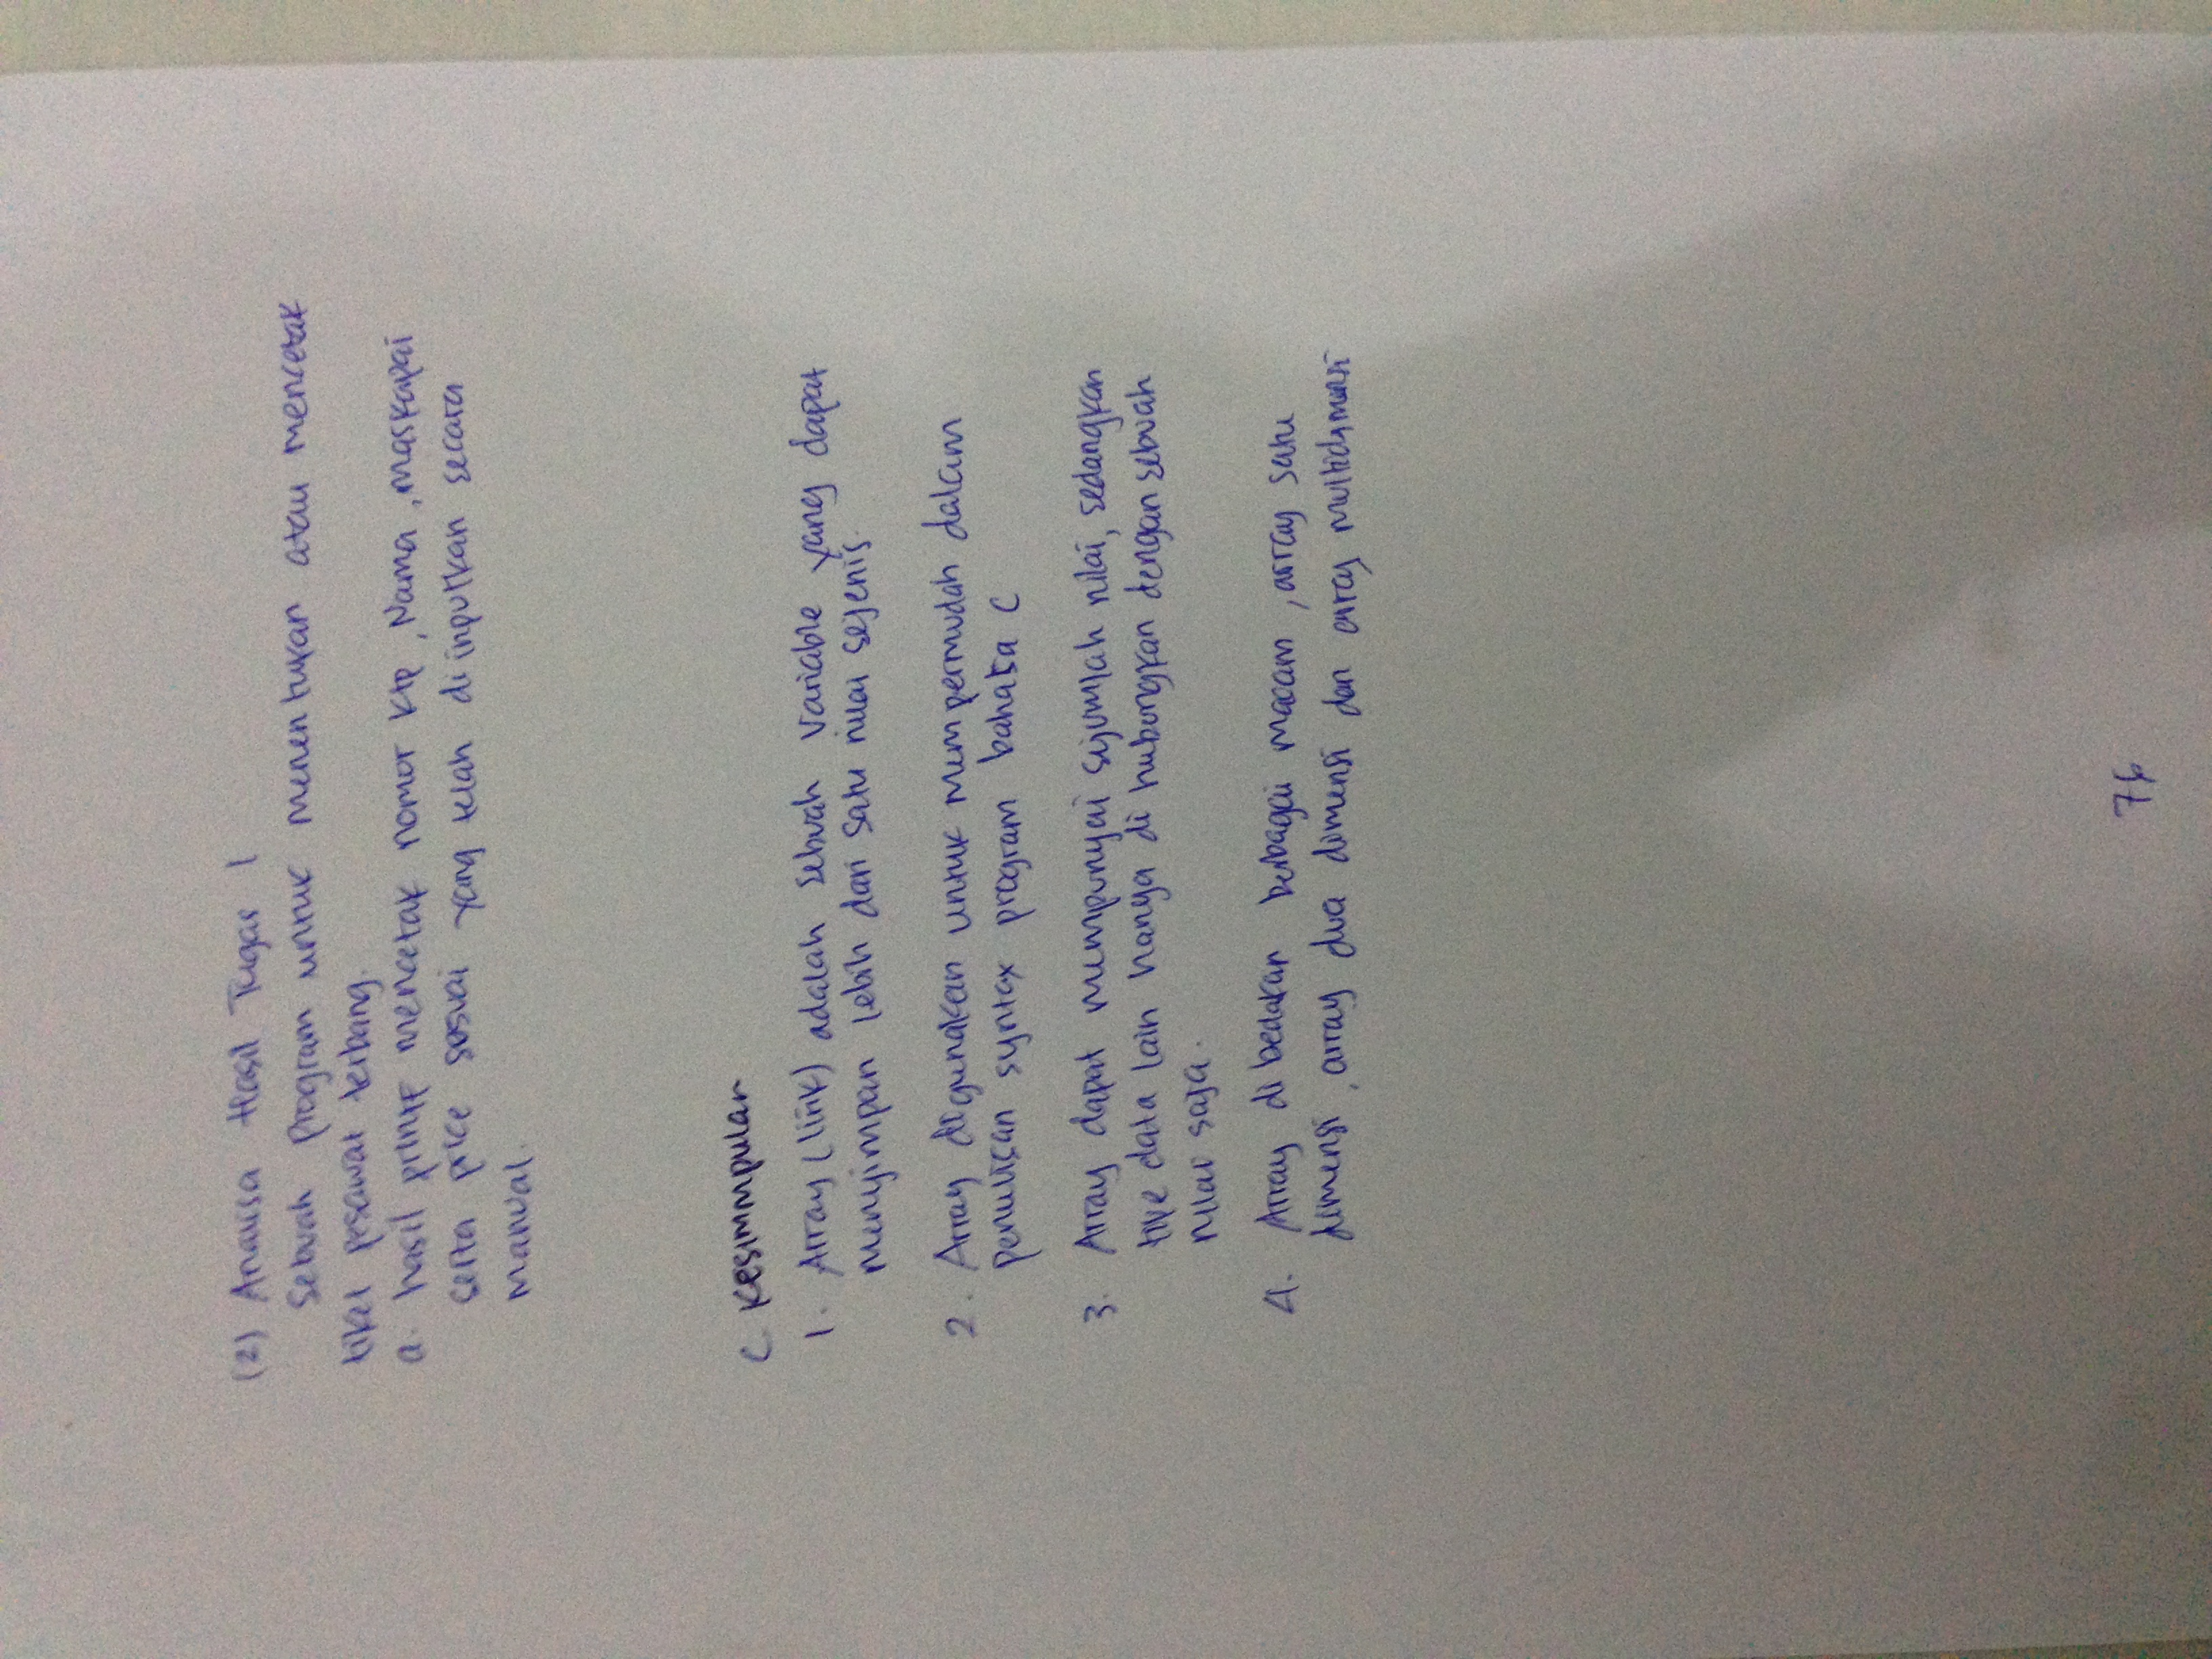 (2) Analisa Hasil Tugas 1
Sebuah program untuk menentukan atau mencetak
tiket pesawat terbang.
a. hasil printf mencetak nomor ktp, Nama, maskapai
serta price sesuai yang telah di inputkan secara
manual.
C. Kesimmpulan
1. Array (lirik) adalah sebuah variable yang dapat
menyimpan lebih dari satu nilai sejenis.
2. Array digunakan untuk mempermudah dalam
penulisan syntax program bahasa C
3. Array dapat mempunyai sejumlah nilai, sedangkan
tipe data lain hanya di hubungkan dengan sebuah
nilai saja.
4. Array di bedakan berbagai macam, array satu
dimensi, array dua dimensi dan array multidimensi
76